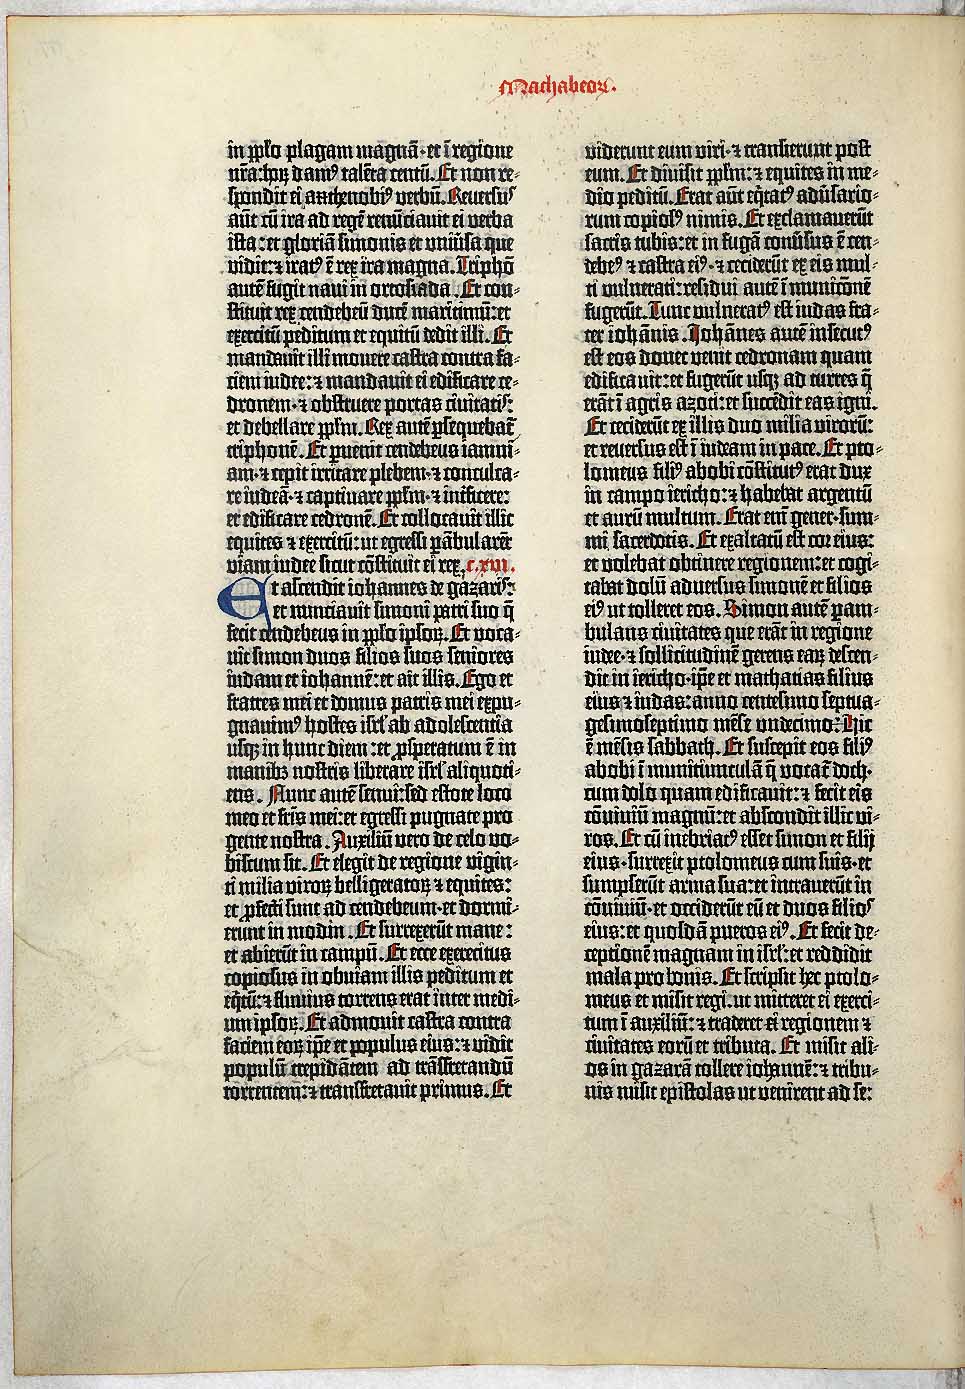 Machabeoꝝ.
in pp̄lo plagam magnā·et ī regione
nr̄a:hoꝝ damꝰ talēta centū. Et non re⸗
spondit ei anthenobiꝰ verbū. Reuersus
aūt cū ira ad regē renūciauit ei verba
ista: et gloriā simonis et vniūsa que
vidit: ⁊ iratꝰ ē rex ira magna. Triphō
autē fugit naui in ortosiada. Et con⸗
stituit rex cendebeū ducē maritimū: et
exercitū peditum et equitū dedit illi. Et
mandauit illi mouere castra contra fa⸗
ciem iudee: ⁊ mandauit ei edificare ce⸗
dronem·⁊ obstruere portas ciuitatis:
et debellare pp̄lm. Rex autē ꝑsequebat̄
triphonē. Et ꝑuenit cendebeus iamni⸗
am·⁊ cepit irritare plebem·⁊ conculca⸗
re iudeā·⁊ captiuare pp̄lm·⁊ inťficere:
et edificare cedronē. Et collocauit illic
equites ⁊ exercitū: ut egressi ꝑābularēt
viam iudee sicut cōstituit ei rex. c. xvi.
Et ascendit iohannes de gazaris:
et nunciauit simoni patri suo q̄
fecit cendebeus in pp̄lo ipsoꝝ. Et voca⸗
uit simon duos filios suos seniores
iudam et iohannē: et ait illis. Ego et
fratres mei et domus patris mei expu⸗
gnauimꝰ hostes isrl̄ ab adolescentia
usqꝫ in hunc diem: et ꝓsperatum ē in
manibꝫ nostris liberare isrl̄ aliquoti⸗
ens. Nunc autē senui: sed estote loco
meo et fr̄es mei: et egressi pugnate pro
gente nostra. Auxiliū vero de celo vo⸗
biscum sit. Et elegit de regione vigin⸗
ti milia viroꝝ belligeratoꝝ ⁊ equites:
et ꝓfecti sunt ad cendebeum·et dormi⸗
erunt in modin. Et surrexerūt mane:
et abierūt in campū. Et ecce exercitus
copiosus in obuiam illis peditum et
eq̄tū: ⁊ fluuius torrens erat inter medi⸗
um ipsoꝝ. Et admouit castra contra
faciem eoꝝ ip̄e et populus eius: ⁊ vidit
populū trepidātem ad trāsfretandū
torrentem: ⁊ transfretauit primus. Et
viderunt eum viri·⁊ transierunt post
eum. Et diuisit pp̄lm: ⁊ equites in me⸗
dio peditū. Erat aūt eq̄tatꝰ adūsario⸗
rum copiosꝰ nimis. Et exclamauerūt
sacris tubis: et in fugā conūsus ē cen⸗
debeꝰ ⁊ castra eiꝰ·⁊ ceciderūt ex eis mul⸗
ti vulnerati: residui autē ī municōnē
fugerūt. Tunc vulneratꝰ est iudas fra⸗
ter iohānis. Johānes autē insecutꝰ
est eos donec venit cedronam quam
edificauit: et fugerūt usqꝫ ad turres q̄
erāt ī agris azoti: et succēdit eas igni.
Et ceciderūt ex illis duo milia virorū:
et reuersus est ī iudeam in pace. Et pto⸗
lomeus filiꝰ abobi cōstitutꝰ erat dux
in campo iericho: ⁊ habebat argentū
et aurū multum. Erat em̄ gener·sum⸗
mi sacerdotis. Et exaltatū est cor eius:
et volebat obtinere regionem: et cogi⸗
tabat dolū aduersus simonē et filios
eiꝰ ut tolleret eos. Simon autē ꝑam⸗
bulans ciuitates que erāt in regione
iudee·⁊ sollicitudinē gerens eaꝝ descen⸗
dit in iericho·ip̄e et mathatias filius
eius ⁊ iudas: anno centesimo septua⸗
gesimoseptimo mēse undecimo: Hic
ē mēsis sabbath. Et suscepit eos filiꝰ
abobi ī munitiunculā q̄ vocat̄ doch·
cum dolo quam edificauit: ⁊ fecit eis
cōuiuiū magnū: et abscondit illic vi⸗
ros. Et cū inebriatꝰ esset simon et filij
eius·surrexit ptolomeus cum suis·et
sumpserūt arma sua: et intrauerūt in
cōuiuiū·et occiderūt eū et duos filios
eius: et quosdā pueros eiꝰ. Et fecit de⸗
ceptionē magnam in isrl̄: et reddidit
mala pro bonis. Et scripsit hec ptolo⸗
meus et misit regi·ut mitteret ei exerci⸗
tum ī auxiliū: ⁊ traderet ei regionem ⁊
ciuitates eorū et tributa. Et misit ali⸗
os in gazarā tollere iohannē: ⁊ tribu⸗
nis misit epistolas ut venirent ad se: